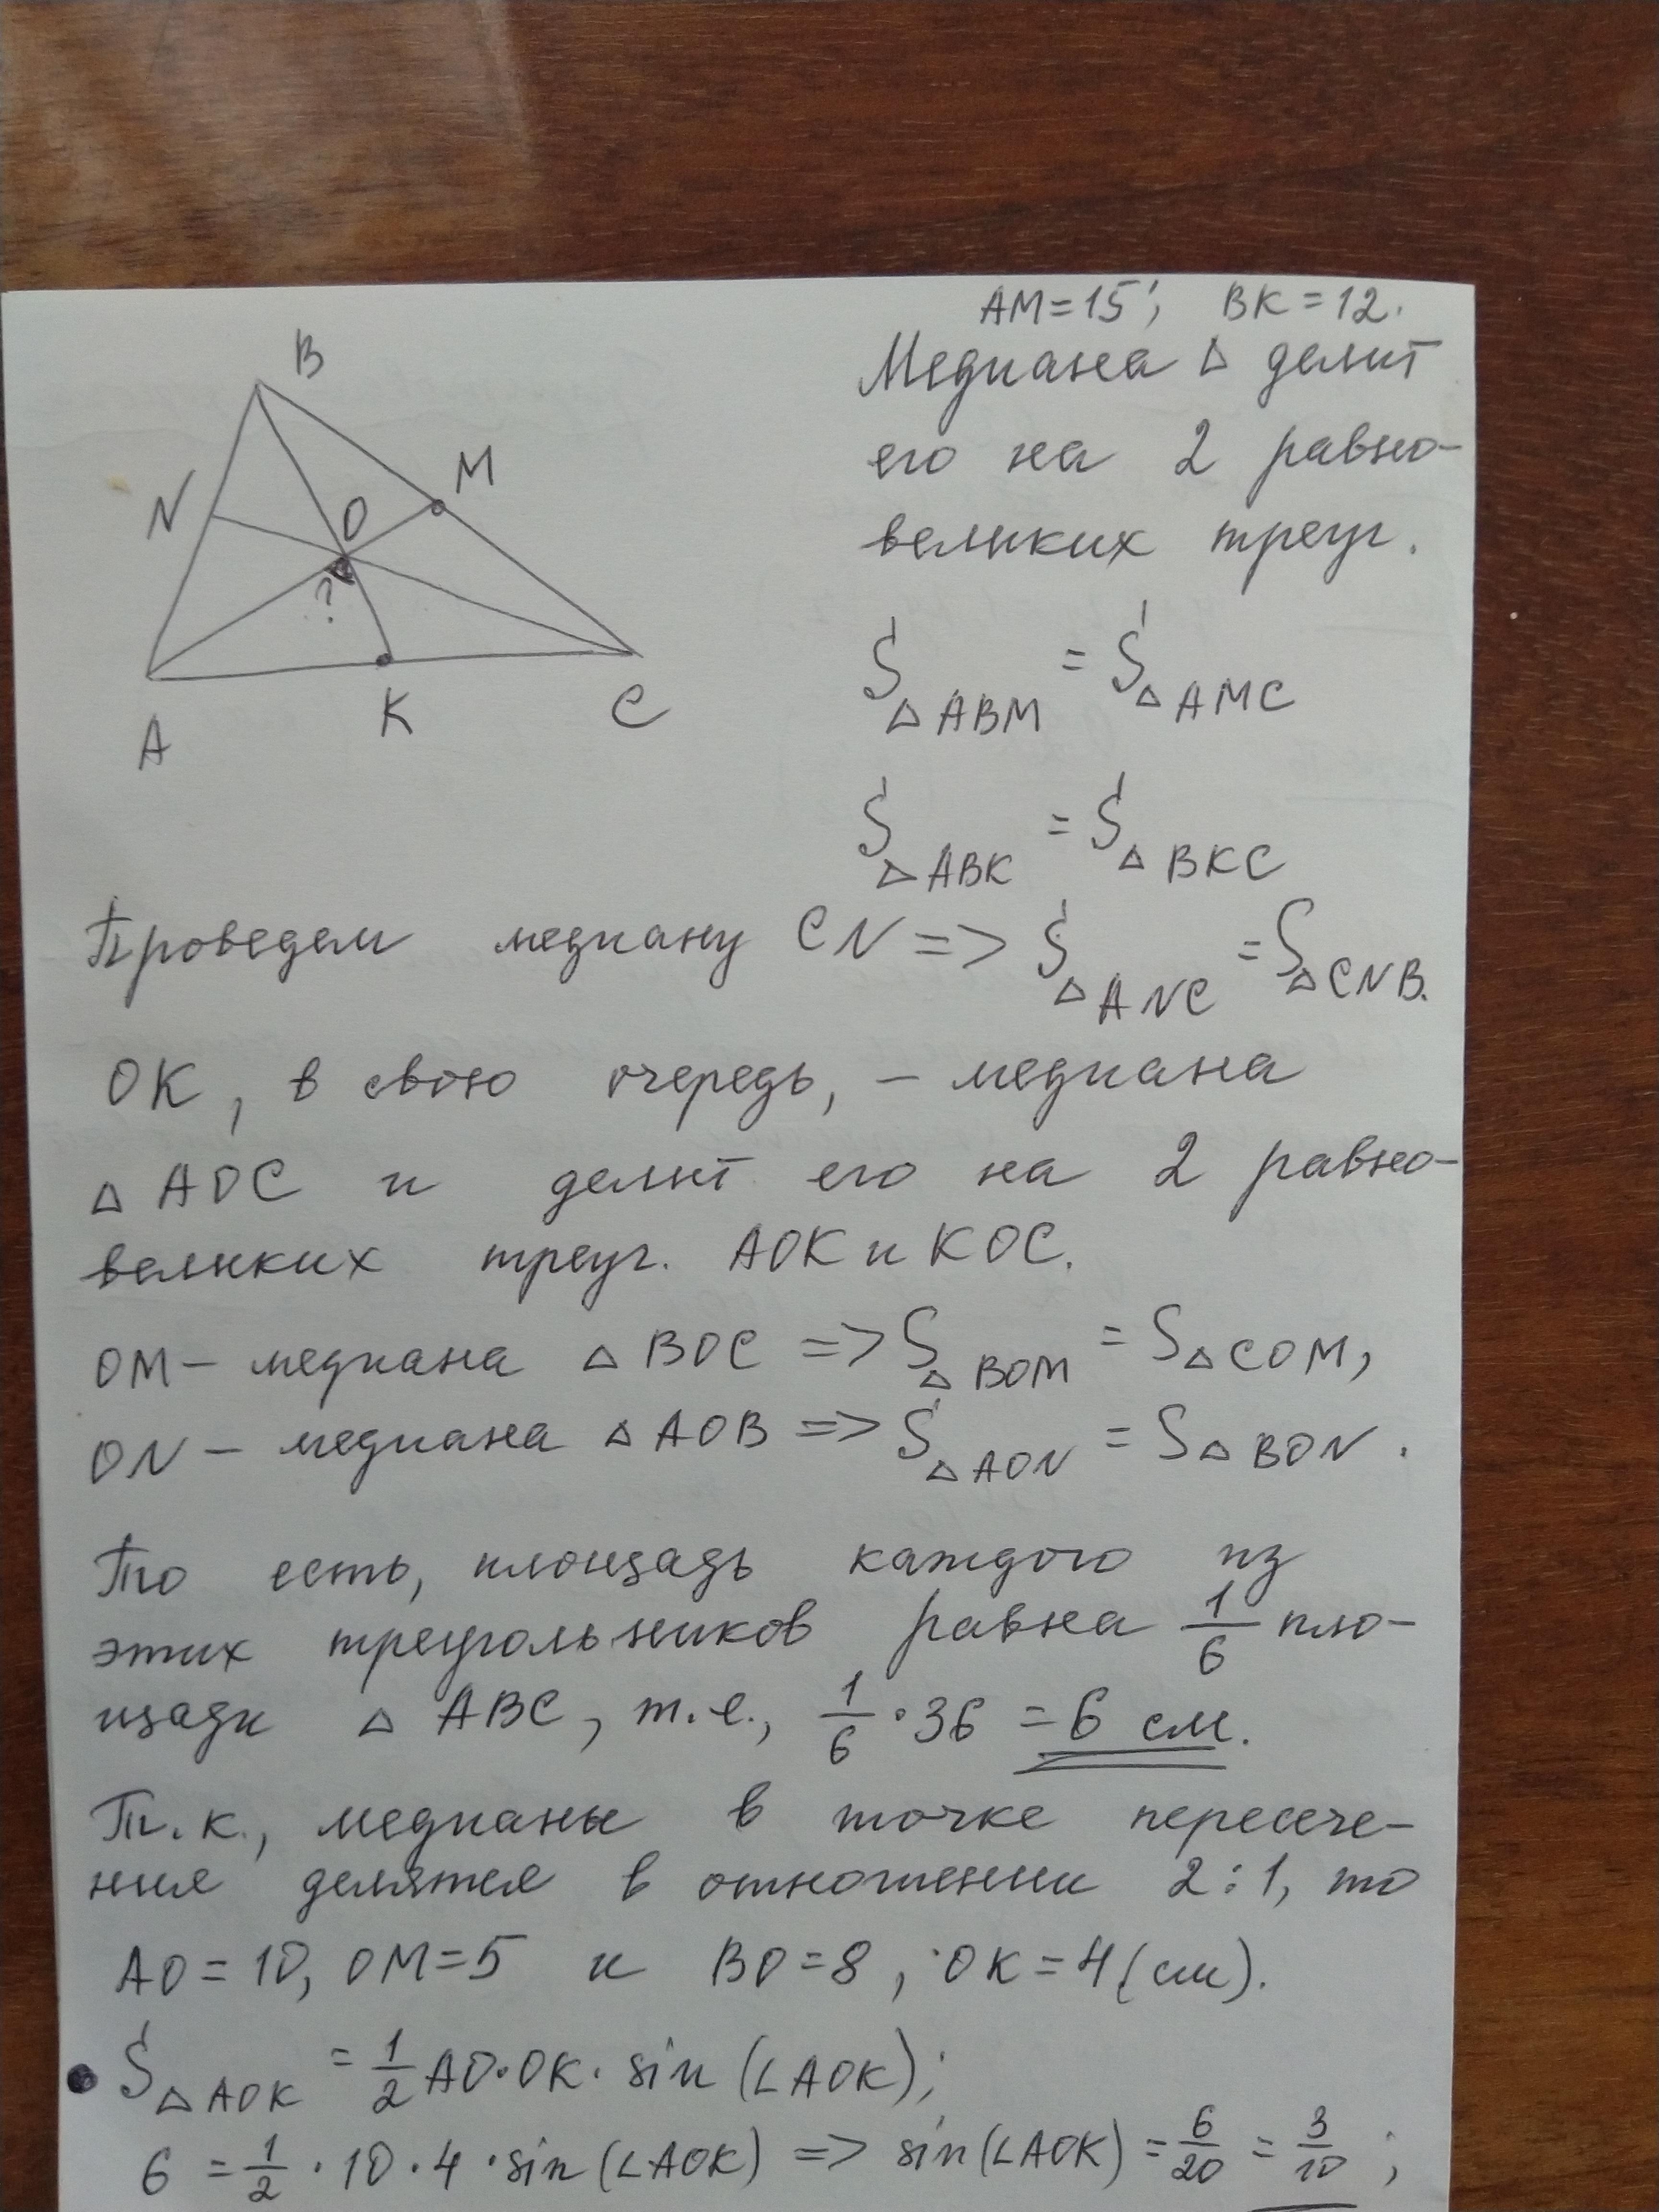 AM=15; BK=12.
B
Медиана △ делит
его на 2 равно-
M
N
O
великих треуг.
?
S△ABM = S△AMC
A
K
C
S△ABK = S△BKC
Проведем медиану CN => S△ANC = S△CNB.
OK, в свою очередь, – медиана
△ AOC и делит его на 2 равно-
великих треуг. AOK и KOC.
OM – медиана △ BOC => S△BOM = S△COM,
ON – медиана △ AOB => S△AON = S△BON.
То есть, площадь каждого из
этих треугольников равна 1/6 пло-
щади △ ABC, т.е., 1/6 · 36 = 6 см.
Т.к., медианы в точке пересече-
ния делятся в отношении 2:1, то
AO = 10, OM = 5 и BO = 8, OK = 4 (см).
S△AOK = 1/2 AO · OK · sin (∠AOK);
6 = 1/2 · 10 · 4 · sin (∠AOK) => sin (∠AOK) = 6/20 = 3/10 ;